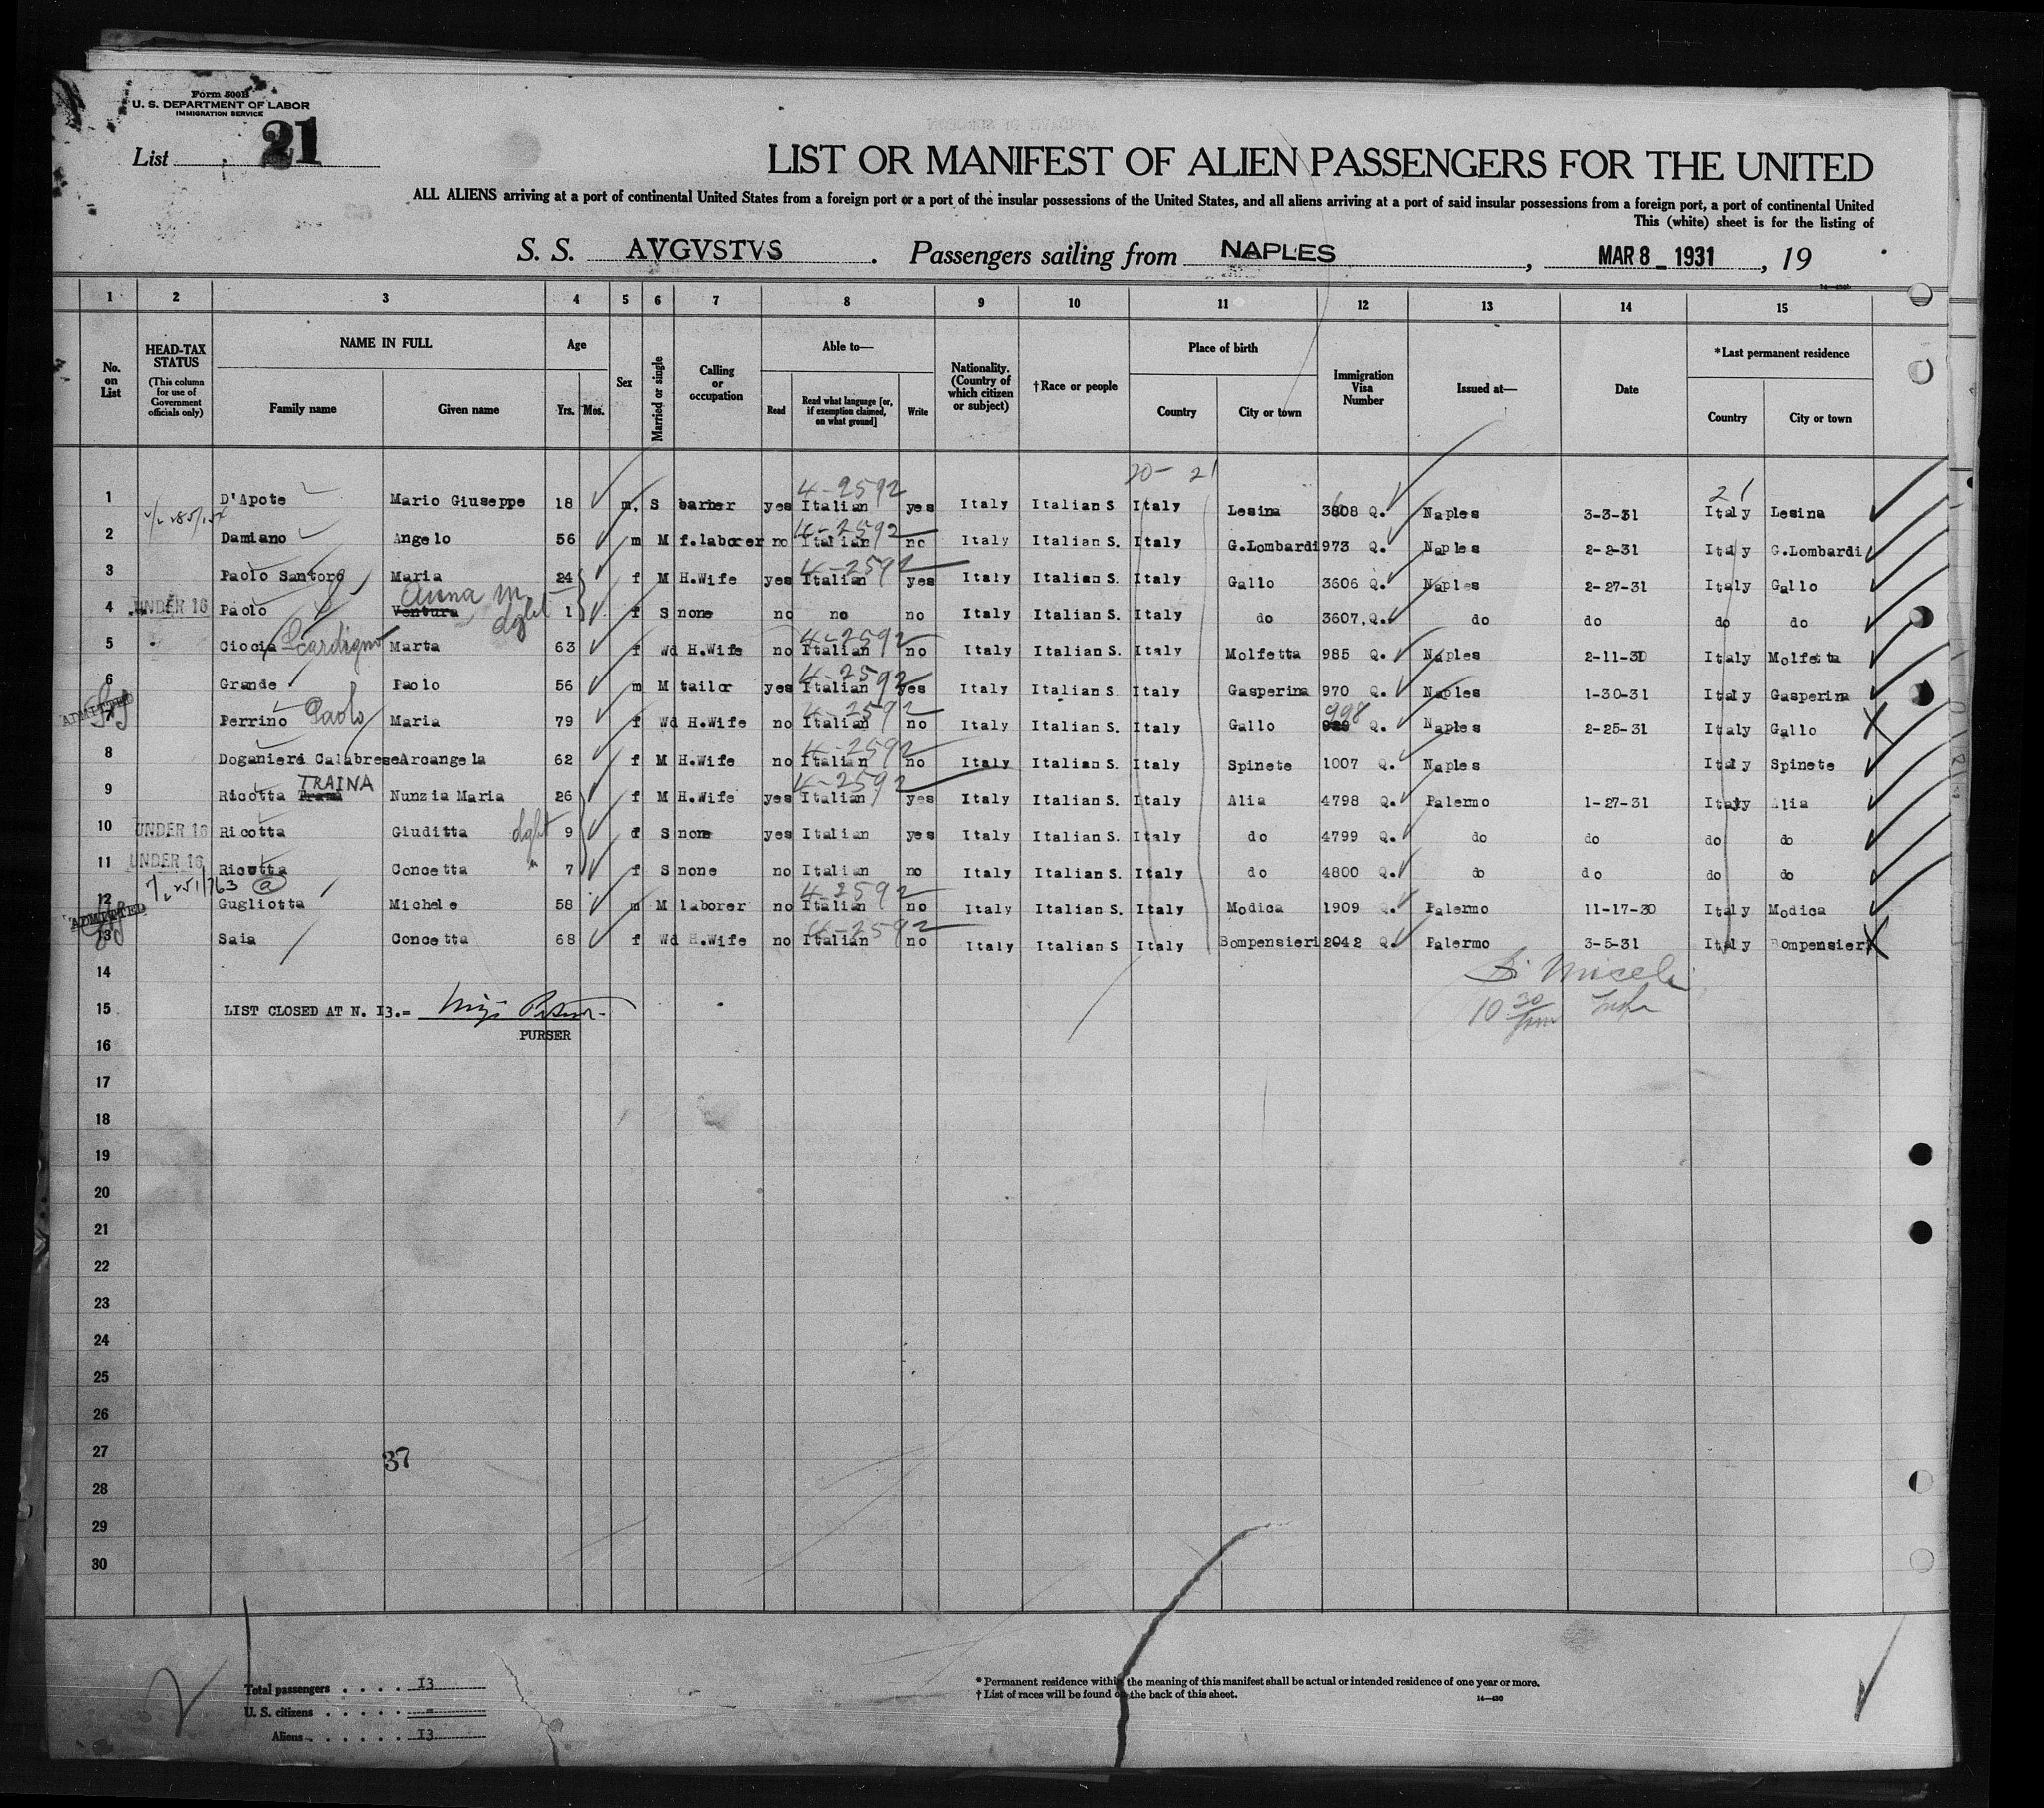 Form 500B
U. S. DEPARTMENT OF LABOR
IMMIGRATION SERVICE
List 21
LIST OR MANIFEST OF ALIEN PASSENGERS FOR THE UNITED
ALL ALIENS arriving at a port of continental United States from a foreign port or a port of the insular possessions of the United States, and all aliens arriving at a port of said insular possessions from a foreign port, a port of continental United
This (white) sheet is for the listing of
S. S. AVGVSTVS. Passengers sailing from NAPLES, MAR 8 - 1931, 19
1 2 3 4 5 6 7 8 9 10 11 12 13 14 15
No. on List
HEAD-TAX STATUS (This column for use of Government officials only)
NAME IN FULL Family name Given name
Age Yrs. Mos.
Sex
Married or single
Calling or occupation
Able to— Read Read what language [or, if exemption claimed, on what ground] Write
Nationality. (Country of which citizen or subject)
†Race or people
Place of birth Country City or town
Immigration Visa Number
Issued at—
Date
*Last permanent residence Country City or town
20- 21 21
4-2592
1 D'Apote Mario Giuseppe 18 m. S barber yes Italian yes Italy Italian S Italy Lesina 3808 Q. Naples 3-3-31 Italy Lesina
4-2592
2 Damiano Angelo 56 m M f.laborer no Italian no Italy Italian S. Italy G.Lombardi 973 Q. Naples 2-2-31 Italy G.Lombardi
4-2592
3 Paolo Santoro Maria 24 f M H.Wife yes Italian yes Italy Italian S. Italy Gallo 3606 Q. Naples 2-27-31 Italy Gallo
Anna M. dght
4 UNDER 16 Paolo Ventura 1 f S none no no no Italy Italian S. Italy do 3607.Q. do do do do
4-2592
5 Ciocia Scardigno Marta 63 f Wd H.Wife no Italian no Italy Italian S. Italy Molfetta 985 Q. Naples 2-11-30 Italy Molfetta
4-2592
6 Grande Paolo 56 m M tailor yes Italian yes Italy Italian S Italy Gasperina 970 Q. Naples 1-30-31 Italy Gasperina
ADMITTED
4-2592 998
7 Perrino Paolo Maria 79 f Wd H.Wife no Italian no Italy Italian S. Italy Gallo Q. Naples 2-25-31 Italy Gallo
4-2592
8 Doganieri Calabrese Arcangela 62 f M H.Wife no Italian no Italy Italian S. Italy Spinete 1007 Q. Naples Italy Spinete
TRAINA 4-2592
9 Ricotta Nunzia Maria 26 f M H.Wife yes Italian yes Italy Italian S. Italy Alia 4798 Q. Palermo 1-27-31 Italy Alia
10 UNDER 16 Ricotta Giuditta dght 9 f S none yes Italian yes Italy Italian S. Italy do 4799 Q. do do do do
11 UNDER 16 Ricotta Concetta " 7 f S none no Italian no Italy Italian S. Italy do 4800 Q. do do do do
4-2592
12 Gugliotta Michele 58 m M laborer no Italian no Italy Italian S. Italy Modica 1909 Q. Palermo 11-17-30 Italy Modica
ADMITTED
4-2592
13 Saia Concetta 68 f Wd H.Wife no Italian no Italy Italian S Italy Bompensieri 2042 Q. Palermo 3-5-31 Italy Bompensieri
14
Miceli
15 LIST CLOSED AT N. I3.=
10 30
PURSER
16
17
18
19
20
21
22
23
24
25
26
27
37
28
29
30
Total passengers . . . . I3
U. S. citizens . . . . . =
Aliens . . . . . . I3
* Permanent residence within the meaning of this manifest shall be actual or intended residence of one year or more.
† List of races will be found on the back of this sheet.
14—430